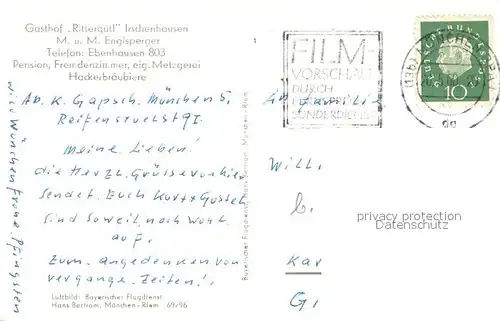 Gasthof „Rittergütl" Irschenhausen
M. u. M. Englsperger
Telefon: Ebenhausen 803
Pension, Fremdenzimmer, eig. Metzgerei
Hackerbräubiere
Ab. K. Gapsch. München 5,
Reifenstuelstr 9I.
Meine Lieben!
die Herzl. Grüsse von hier
sendet Euch Kurt + Gustel
sind soweit noch wohl
auf.
Zum angedenken von
vergange. Zeiten!.
wir Wünschen frohe Pfingsten
Luftbild: Bayerischer Flugdienst
Hans Bertram, München-Riem 69/96
Bayerischer Flugdienst Hans Bertram, München-Riem
FILM-
VORSCHAU
DURCH
SONDERDIENST
DEUTSCHE BUNDESPOST
10
An Familie
Will.
b.
Kar
G.
privacy protection
Datenschutz